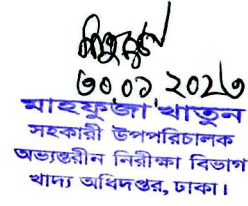 ৩০.০১.২০২৩
মাহফুজা খাতুন
সহকারী উপপরিচালক
অভ্যন্তরীন নিরীক্ষা বিভাগ
খাদ্য অধিদপ্তর, ঢাকা।